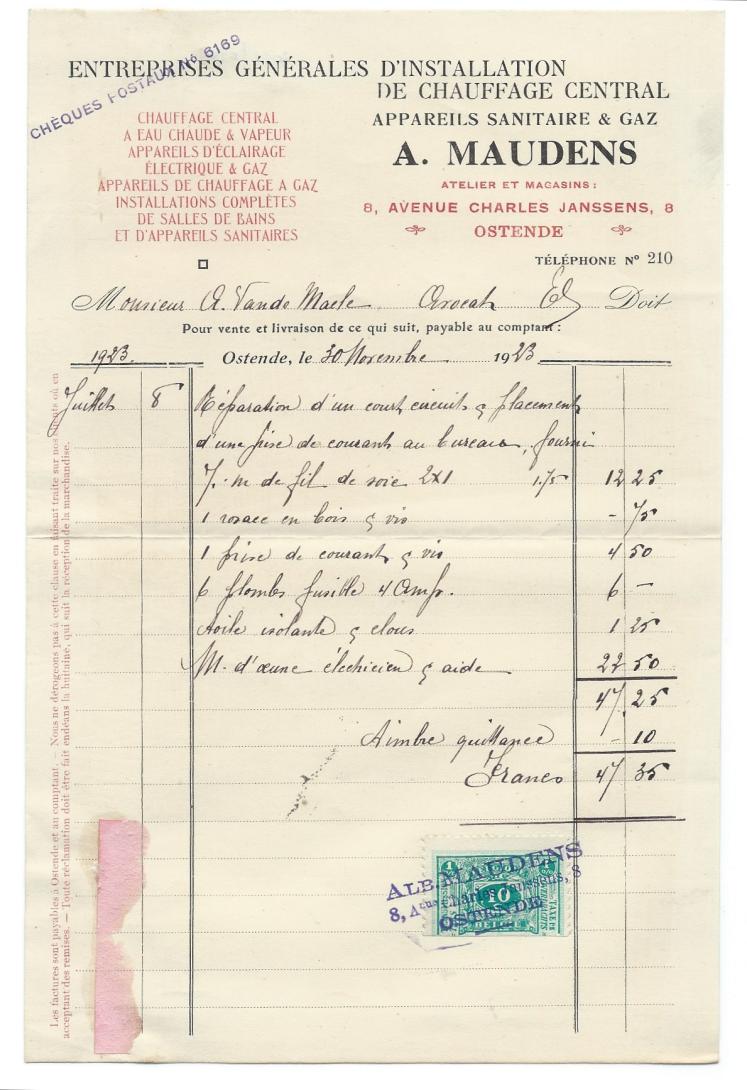 CHÈQUES POSTAUX No 6169
ENTREPRISES GÉNÉRALES D'INSTALLATION
DE CHAUFFAGE CENTRAL
APPAREILS SANITAIRE & GAZ
A. MAUDENS
ATELIER ET MAGASINS :
8, AVENUE CHARLES JANSSENS, 8
OSTENDE
TÉLÉPHONE No 210
CHAUFFAGE CENTRAL
A EAU CHAUDE & VAPEUR
APPAREILS D'ÉCLAIRAGE
ÉLECTRIQUE & GAZ
APPAREILS DE CHAUFFAGE A GAZ
INSTALLATIONS COMPLÈTES
DE SALLES DE BAINS
ET D'APPAREILS SANITAIRES
Monsieur A. Vande Maele Avocat Doit
Pour vente et livraison de ce qui suit, payable au comptant :
1923 Ostende, le 30 Novembre 1923
Juillet 8 Réparation d'un court circuit & placement
d'une prise de courant au bureau, fourni
7 m de fil de soie 2x1 1.75 12 25
1 rosace en bois & vis - 75
1 prise de courant & vis 4 50
6 plombs fusible 4 Amp. 6 —
toile isolante & clous 1 25
M. d'œuvre électricien & aide 22 50
47,25
Timbre quittance - 10
Francs 47 35
ALB. MAUDENS
8, Aue Charles Janssens, 8
OSTENDE
Les factures sont payables à Ostende et au comptant. — Nous ne dérogeons pas à cette clause en faisant traite sur nos clients ou en
acceptant des remises. — Toute réclamation doit être fait endéans la huitaine, qui suit la réception de la marchandise.